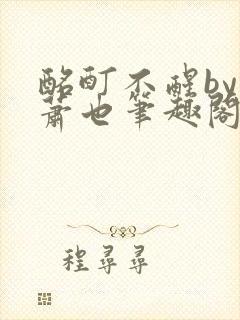 酩酊不醒by
萧也笔趣阁
程寻寻